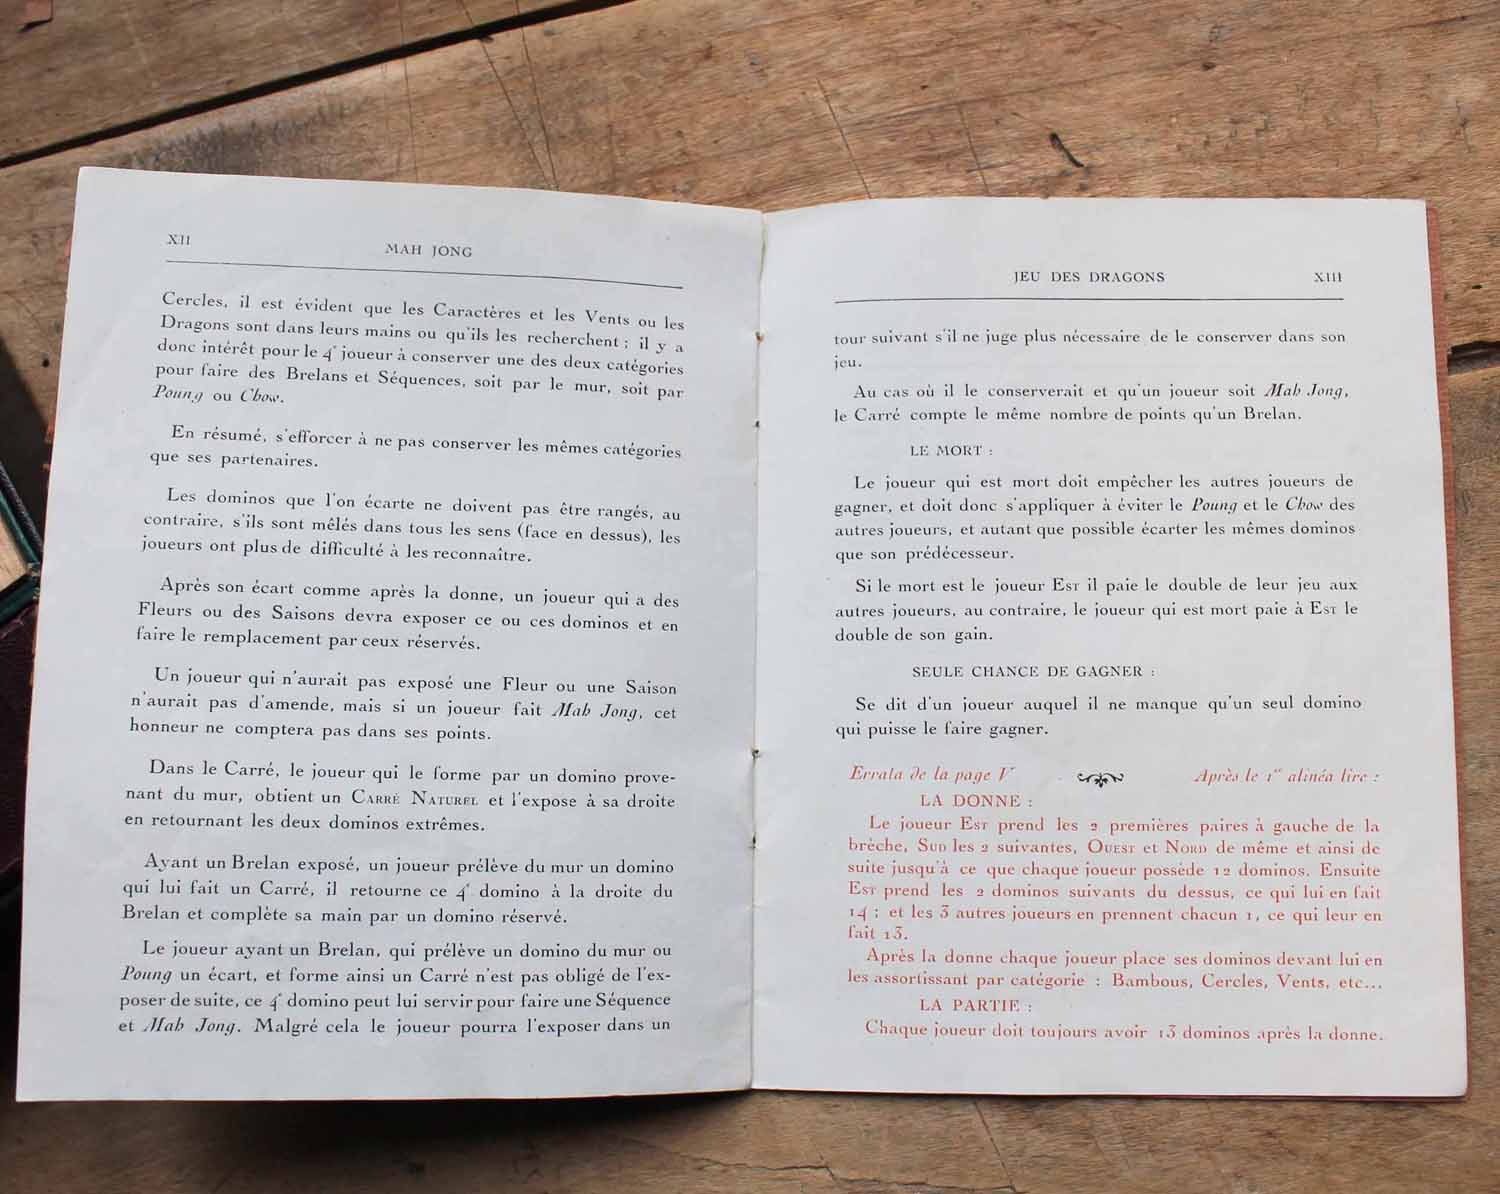 XII
MAH JONG
Cercles, il est évident que les Caractères et les Vents ou les
Dragons sont dans leurs mains ou qu'ils les recherchent ; il y a
donc intérêt pour le 4e joueur à conserver une des deux catégories
pour faire des Brelans et Séquences, soit par le mur, soit par
Poung ou Chow.
En résumé, s'efforcer à ne pas conserver les mêmes catégories
que ses partenaires.
Les dominos que l'on écarte ne doivent pas être rangés, au
contraire, s'ils sont mêlés dans tous les sens (face en dessus), les
joueurs ont plus de difficulté à les reconnaître.
Après son écart comme après la donne, un joueur qui a des
Fleurs ou des Saisons devra exposer ce ou ces dominos et en
faire le remplacement par ceux réservés.
Un joueur qui n'aurait pas exposé une Fleur ou une Saison
n'aurait pas d'amende, mais si un joueur fait Mah Jong, cet
honneur ne comptera pas dans ses points.
Dans le Carré, le joueur qui le forme par un domino prove-
nant du mur, obtient un CARRÉ NATUREL et l'expose à sa droite
en retournant les deux dominos extrêmes.
Ayant un Brelan exposé, un joueur prélève du mur un domino
qui lui fait un Carré, il retourne ce 4e domino à la droite du
Brelan et complète sa main par un domino réservé.
Le joueur ayant un Brelan, qui prélève un domino du mur ou
Poung un écart, et forme ainsi un Carré n'est pas obligé de l'ex-
poser de suite, ce 4e domino peut lui servir pour faire une Séquence
et Mah Jong. Malgré cela le joueur pourra l'exposer dans un
JEU DES DRAGONS
XIII
tour suivant s'il ne juge plus nécessaire de le conserver dans son
jeu.
Au cas où il le conserverait et qu'un joueur soit Mah Jong,
le Carré compte le même nombre de points qu'un Brelan.
LE MORT :
Le joueur qui est mort doit empêcher les autres joueurs de
gagner, et doit donc s'appliquer à éviter le Poung et le Chow des
autres joueurs, et autant que possible écarter les mêmes dominos
que son prédécesseur.
Si le mort est le joueur EST il paie le double de leur jeu aux
autres joueurs, au contraire, le joueur qui est mort paie à EST le
double de son gain.
SEULE CHANCE DE GAGNER :
Se dit d'un joueur auquel il ne manque qu'un seul domino
qui puisse le faire gagner.
Errata de la page V Après le 1er alinéa lire :
LA DONNE :
Le joueur EST prend les 2 premières paires à gauche de la
brèche, SUD les 2 suivantes, OUEST et NORD de même et ainsi de
suite jusqu'à ce que chaque joueur possède 12 dominos. Ensuite
EST prend les 2 dominos suivants du dessus, ce qui lui en fait
14 ; et les 3 autres joueurs en prennent chacun 1, ce qui leur en
fait 13.
Après la donne chaque joueur place ses dominos devant lui en
les assortissant par catégorie : Bambous, Cercles, Vents, etc...
LA PARTIE :
Chaque joueur doit toujours avoir 13 dominos après la donne.